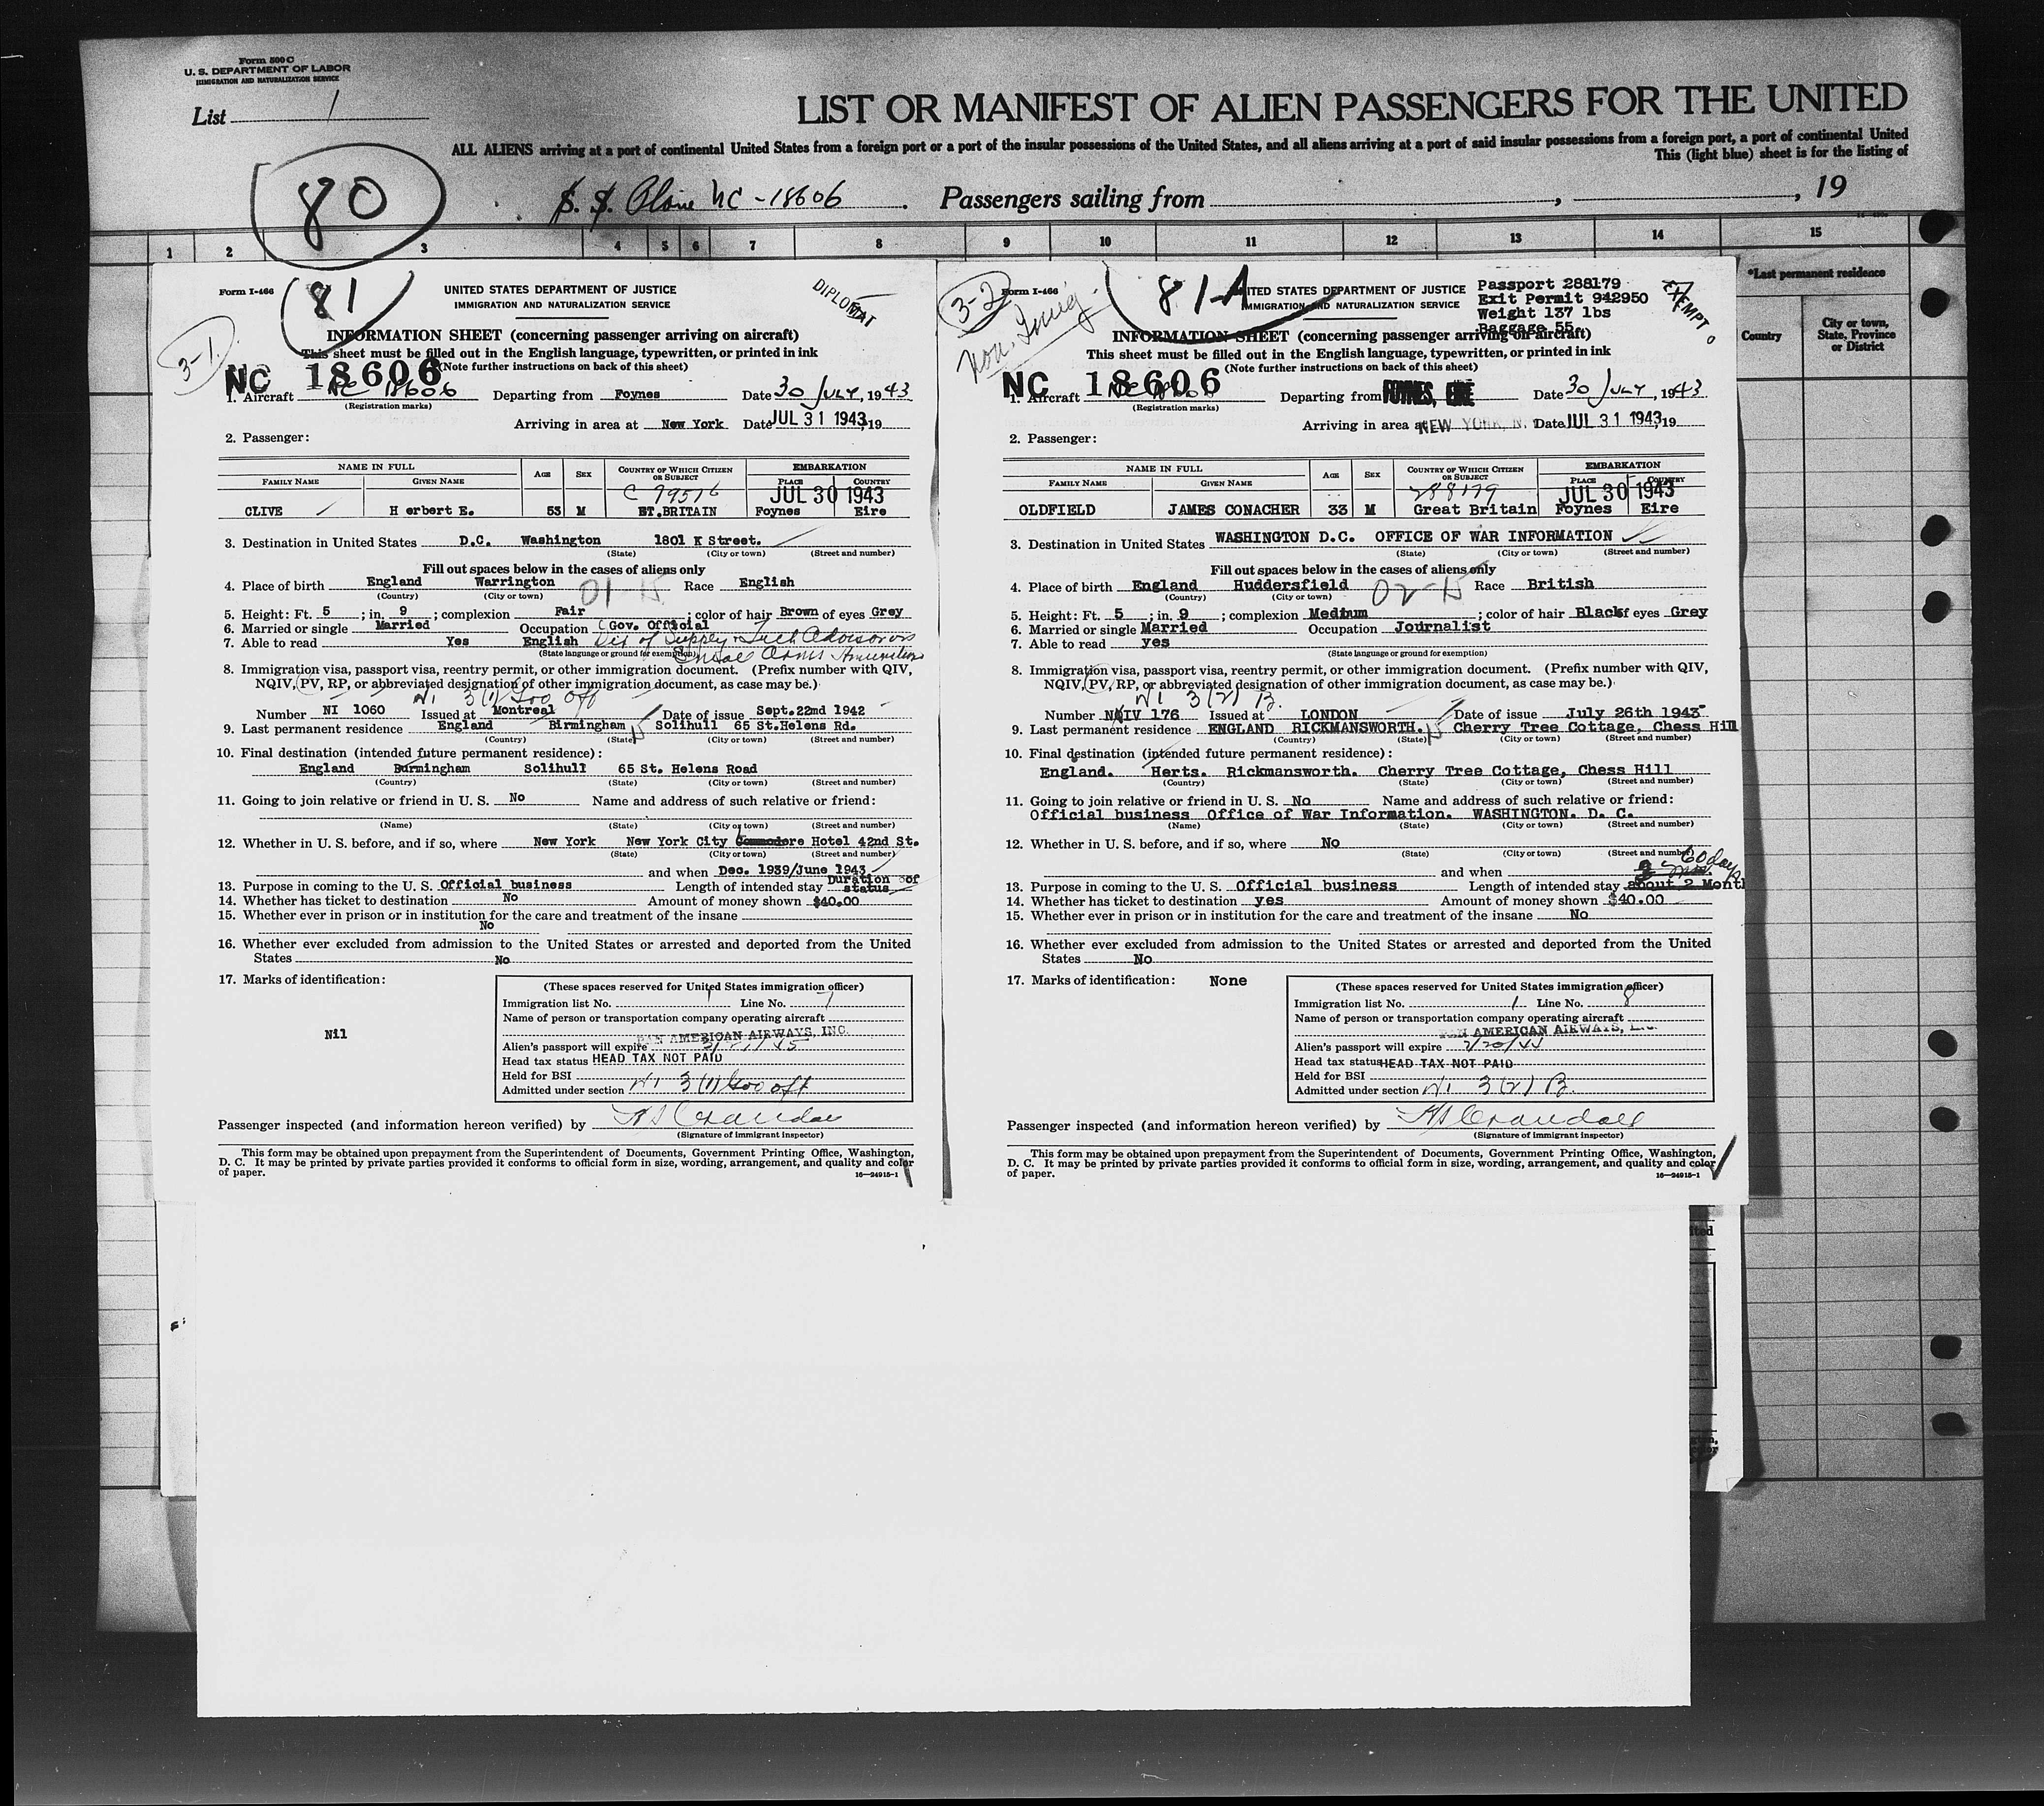 Form 500 C
U. S. DEPARTMENT OF LABOR
IMMIGRATION AND NATURALIZATION SERVICE
List 1
LIST OR MANIFEST OF ALIEN PASSENGERS FOR THE UNITED
ALL ALIENS arriving at a port of continental United States from a foreign port or a port of the insular possessions of the United States, and all aliens arriving at a port of said insular possessions from a foreign port, a port of continental United
This (light blue) sheet is for the listing of
80
S. S. Plane NC-18606 Passengers sailing from , , 19
1 2 3 4 5 6 7 8 9 10 11 12 13 14 15
*Last permanent residence
Country
City or town, State, Province or District
Form I-466
81
3-1
UNITED STATES DEPARTMENT OF JUSTICE
IMMIGRATION AND NATURALIZATION SERVICE
DIPLOMAT
INFORMATION SHEET (concerning passenger arriving on aircraft)
This sheet must be filled out in the English language, typewritten, or printed in ink
(Note further instructions on back of this sheet)
NC 18606
1. Aircraft NC 18606 Departing from Foynes Date 30 JULY, 1943
(Registration marks)
Arriving in area at New York Date JUL 31 1943, 19
2. Passenger:
NAME IN FULL AGE SEX COUNTRY OF WHICH CITIZEN OR SUBJECT EMBARKATION
FAMILY NAME GIVEN NAME PLACE COUNTRY
C 79516 JUL 30 1943
CLIVE Herbert E. 53 M BT.BRITAIN Foynes Eire
3. Destination in United States D.C. Washington 1801 K Street.
(State) (City or town) (Street and number)
Fill out spaces below in the cases of aliens only
4. Place of birth England Warrington 01-15 Race English
(Country) (City or town)
5. Height: Ft. 5; in. 9; complexion Fair; color of hair Brown of eyes Grey
6. Married or single Married Occupation Gov. Official
7. Able to read Yes English Dir of Supply Tech Advisor on
(State language or ground for exemption) Small Arms Ammunition
8. Immigration visa, passport visa, reentry permit, or other immigration document. (Prefix number with QIV,
NQIV, PV, RP, or abbreviated designation of other immigration document, as case may be.)
NI 3(1) Gov Off
Number NI 1060 Issued at Montreal Date of issue Sept.22md 1942
9. Last permanent residence England Birmingham Solihull 65 St.Helens Rd.
(Country) (State) (City or town) (Street and number)
10. Final destination (intended future permanent residence):
England Burmingham Solihull 65 St. Helens Road
(Country) (State) (City or town) (Street and number)
11. Going to join relative or friend in U. S. No Name and address of such relative or friend:
(Name) (State) (City or town) (Street and number)
12. Whether in U. S. before, and if so, where New York New York City Commodore Hotel 42nd St.
(State) (City or town) (Street and number)
and when Dec. 1939/June 1943
13. Purpose in coming to the U. S. Official business Length of intended stay Duration of status
14. Whether has ticket to destination No Amount of money shown $40.00
15. Whether ever in prison or in institution for the care and treatment of the insane
No
16. Whether ever excluded from admission to the United States or arrested and deported from the United
States No
17. Marks of identification:
Nil
(These spaces reserved for United States immigration officer)
Immigration list No. 1 Line No. 7
Name of person or transportation company operating aircraft
PAN AMERICAN AIRWAYS, INC.
Alien's passport will expire
Head tax status HEAD TAX NOT PAID
Held for BSI
Admitted under section NI 3(1) Gov off
Passenger inspected (and information hereon verified) by H S Crandall
(Signature of immigrant inspector)
This form may be obtained upon prepayment from the Superintendent of Documents, Government Printing Office, Washington,
D. C. It may be printed by private parties provided it conforms to official form in size, wording, arrangement, and quality and color
of paper.
16—24915-1
Form I-466
3-2
Non-Immig.
81-A
UNITED STATES DEPARTMENT OF JUSTICE
IMMIGRATION AND NATURALIZATION SERVICE
Passport 288179
Exit Permit 942950
Weight 137 lbs
Baggage 55
EXEMPT
INFORMATION SHEET (concerning passenger arriving on aircraft)
This sheet must be filled out in the English language, typewritten, or printed in ink
(Note further instructions on back of this sheet)
NC 18606
1. Aircraft Departing from FOYNES, EIRE Date 30 JULY, 1943
(Registration marks)
Arriving in area at NEW YORK, N. Date JUL 31 1943, 19
2. Passenger:
NAME IN FULL AGE SEX COUNTRY OF WHICH CITIZEN OR SUBJECT EMBARKATION
FAMILY NAME GIVEN NAME PLACE COUNTRY
288179 JUL 30 1943
OLDFIELD JAMES CONACHER 33 M Great Britain Foynes Eire
3. Destination in United States WASHINGTON D.C. OFFICE OF WAR INFORMATION
(State) (City or town) (Street and number)
Fill out spaces below in the cases of aliens only
4. Place of birth England Huddersfield 02-15 Race British
(Country) (City or town)
5. Height: Ft. 5; in. 9; complexion Medium; color of hair Black of eyes Grey
6. Married or single Married Occupation Journalist
7. Able to read yes
(State language or ground for exemption)
8. Immigration visa, passport visa, reentry permit, or other immigration document. (Prefix number with QIV,
NQIV, PV, RP, or abbreviated designation of other immigration document, as case may be.)
NI 3(2) B.
Number NQIV 176 Issued at LONDON Date of issue July 26th 1943
9. Last permanent residence ENGLAND RICKMANSWORTH. Cherry Tree Cottage, Chess Hill
(Country) (State) (City or town) (Street and number)
10. Final destination (intended future permanent residence):
England. Herts. Rickmansworth. Cherry Tree Cottage, Chess Hill
(Country) (State) (City or town) (Street and number)
11. Going to join relative or friend in U. S. No Name and address of such relative or friend:
Official business Office of War Information. WASHINGTON. D. C.
(Name) (State) (City or town) (Street and number)
12. Whether in U. S. before, and if so, where No
(State) (City or town) (Street and number)
and when 60 days
13. Purpose in coming to the U. S. Official business Length of intended stay about 2 Mont
14. Whether has ticket to destination yes Amount of money shown $40.00
15. Whether ever in prison or in institution for the care and treatment of the insane No
16. Whether ever excluded from admission to the United States or arrested and deported from the United
States No
17. Marks of identification: None
(These spaces reserved for United States immigration officer)
Immigration list No. 1 Line No. 8
Name of person or transportation company operating aircraft
PAN AMERICAN AIRWAYS,
Alien's passport will expire
Head tax status HEAD TAX NOT PAID
Held for BSI
Admitted under section NI 3(2) B.
Passenger inspected (and information hereon verified) by H S Crandall
(Signature of immigrant inspector)
This form may be obtained upon prepayment from the Superintendent of Documents, Government Printing Office, Washington,
D. C. It may be printed by private parties provided it conforms to official form in size, wording, arrangement, and quality and color
of paper.
16—24915-1